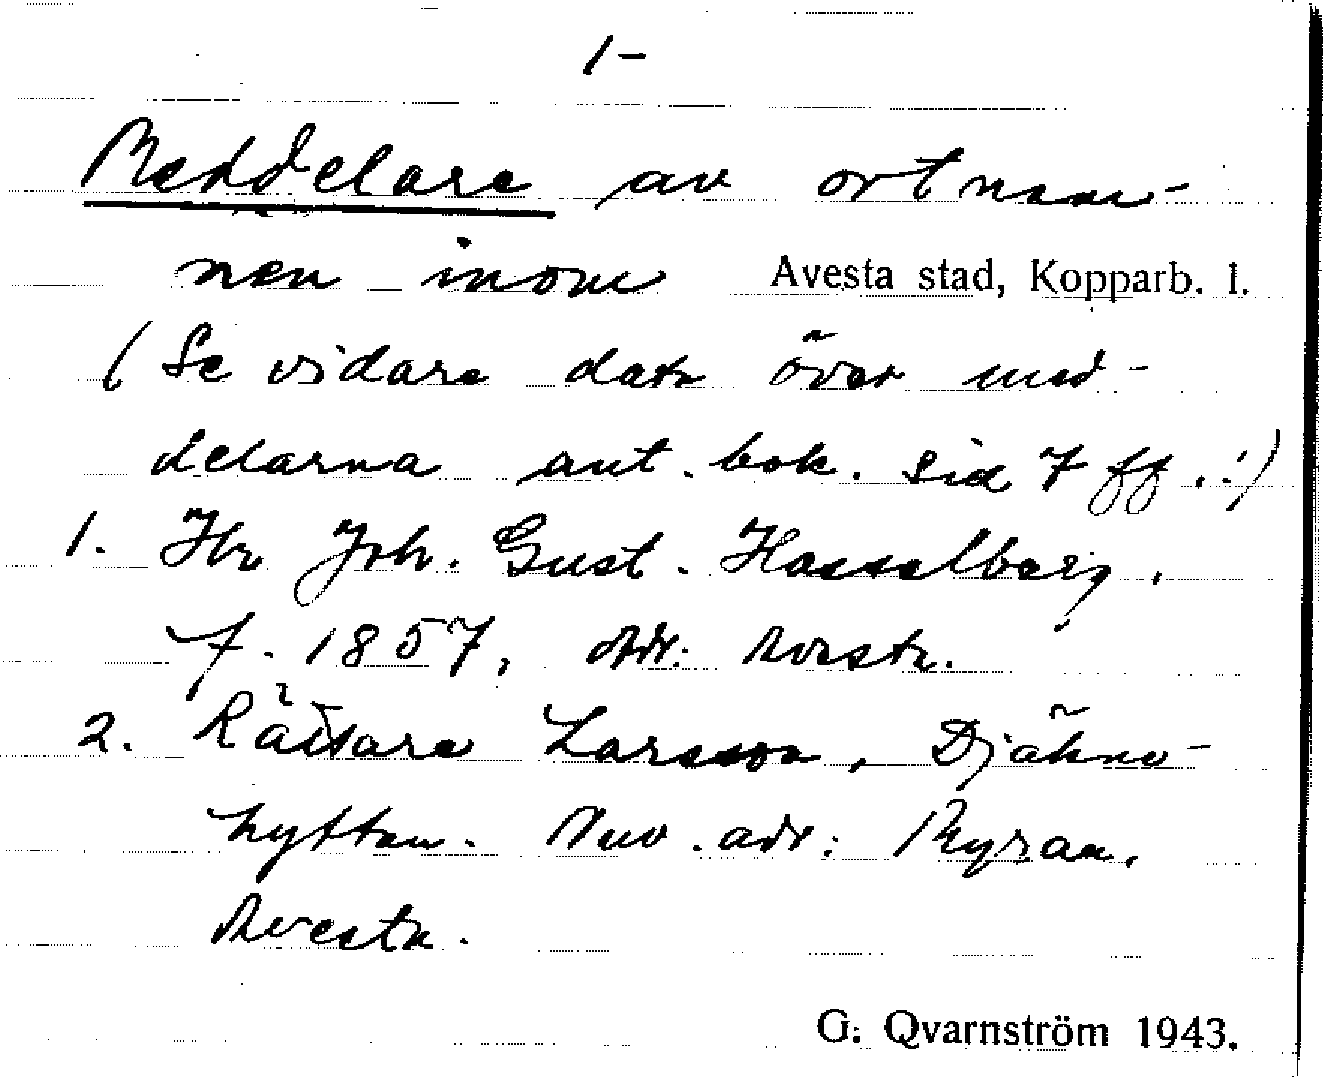 1-
Meddelare av ortnam-
nen inom Avesta stad, Kopparb. l.
(Se vidare data över med-
delarna ant. bok. sid 7 ff.:)
1. Hr Joh. Gust. Hasselberg.
f. 1857, Adr: Avesta.
2. Rättare Larsson, Djäkne-
hyttan. Nuv. adr: Myran,
Avesta.
G. Qvarnström 1943.